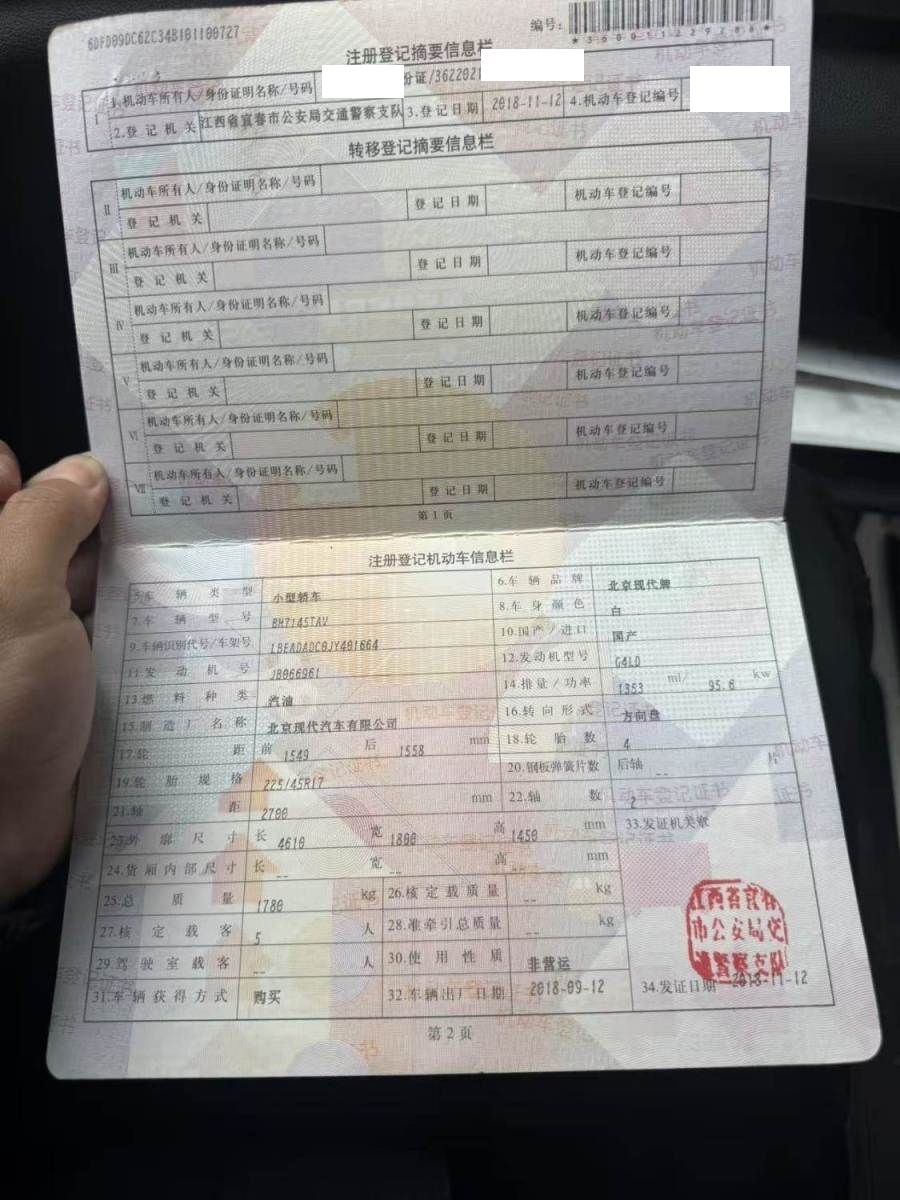 6DFD09DC62C34B101100727
编号:
*360011229286*
注册登记摘要信息栏
I
1.机动车所有人/身份证明名称/号码 份证/3622021
2.登记机关 江西省宜春市公安局交通警察支队 3.登记日期 2018-11-12 4.机动车登记编号
转移登记摘要信息栏
II
机动车所有人/身份证明名称/号码
登记机关 登记日期 机动车登记编号
III
机动车所有人/身份证明名称/号码
登记机关 登记日期 机动车登记编号
IV
机动车所有人/身份证明名称/号码
登记机关 登记日期 机动车登记编号
V
机动车所有人/身份证明名称/号码
登记机关 登记日期 机动车登记编号
VI
机动车所有人/身份证明名称/号码
登记机关 登记日期 机动车登记编号
VII
机动车所有人/身份证明名称/号码
登记机关 登记日期 机动车登记编号
第1页
注册登记机动车信息栏
5.车辆类型 小型轿车 6.车辆品牌 北京现代牌
7.车辆型号 BH7145TAV 8.车身颜色 白
9.车辆识别代号/车架号 LBEADADC0JY401664 10.国产/进口 国产
11.发动机号 JB066961 12.发动机型号 G4LD
13.燃料种类 汽油 14.排量/功率 1353 ml/ 95.6 kw
15.制造厂名称 北京现代汽车有限公司 16.转向形式 方向盘
17.轮距 前 1549 后 1558 mm 18.轮胎数 4
19.轮胎规格 225/45R17 20.钢板弹簧片数 后轴 -- 片
21.轴距 2700 mm 22.轴数 2
23.外廓尺寸 长 4610 宽 1800 高 1450 mm 33.发证机关章
24.货厢内部尺寸 长 -- 宽 -- 高 -- mm
25.总质量 1780 kg 26.核定载质量 -- kg
27.核定载客 5 人 28.准牵引总质量 -- kg
29.驾驶室载客 -- 人 30.使用性质 非营运
31.车辆获得方式 购买 32.车辆出厂日期 2018-09-12 34.发证日期 2018-11-12
江西省宜春
市公安局交
通警察支队
第2页